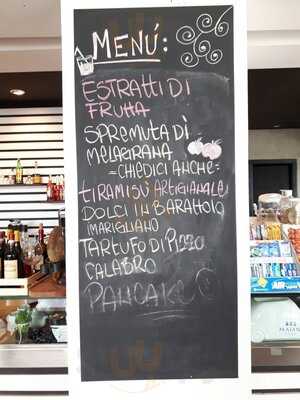 MENÚ:
ESTRATTI DI
FRUTTA
SPREMUTA DÌ
MELAGRANA
-CHIEDICI ANCHE-
TIRAMISU' ARTIGIANALE
DOLCI IN BARATTOLO
(MARIGLIANO
TARTUFO DI PIZZO
CALABRO
PANCAKE